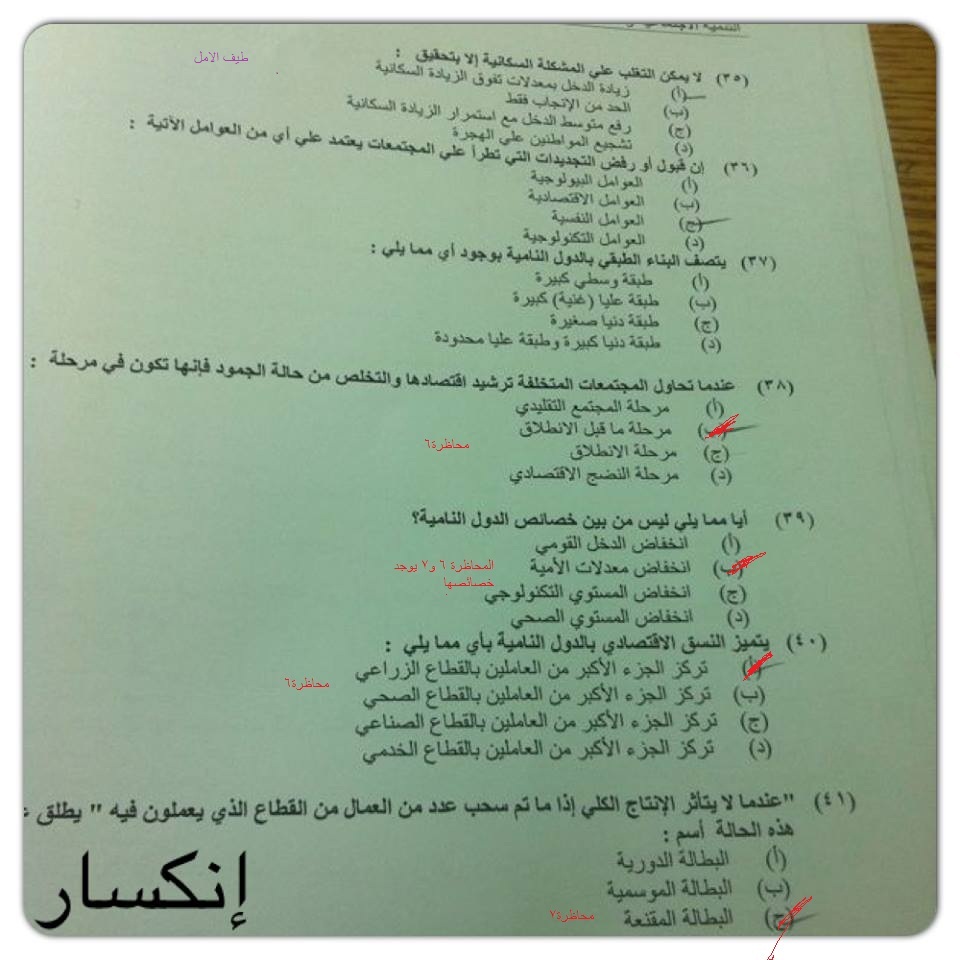 التنمية الاجتماعية
طيف الامل
(٣٥) لا يمكن التغلب علي المشكلة السكانية إلا بتحقيق :
(أ) زيادة الدخل بمعدلات تفوق الزيادة السكانية
(ب) الحد من الإنجاب فقط
(ج) رفع متوسط الدخل مع استمرار الزيادة السكانية
(د) تشجيع المواطنين علي الهجرة
(٣٦) إن قبول أو رفض التجديدات التي تطرأ علي المجتمعات يعتمد علي أي من العوامل الآتية :
(أ) العوامل البيولوجية
(ب) العوامل الاقتصادية
(ج) العوامل النفسية
(د) العوامل التكنولوجية
(٣٧) يتصف البناء الطبقي بالدول النامية بوجود أي مما يلي :
(أ) طبقة وسطي كبيرة
(ب) طبقة عليا (غنية) كبيرة
(ج) طبقة دنيا صغيرة
(د) طبقة دنيا كبيرة وطبقة عليا محدودة
(٣٨) عندما تحاول المجتمعات المتخلفة ترشيد اقتصادها والتخلص من حالة الجمود فإنها تكون في مرحلة :
(أ) مرحلة المجتمع التقليدي
(ب) مرحلة ما قبل الانطلاق
محاظرة٦
(ج) مرحلة الانطلاق
(د) مرحلة النضج الاقتصادي
(٣٩) أيا مما يلي ليس من بين خصائص الدول النامية؟
(أ) انخفاض الدخل القومي
(ب) انخفاض معدلات الأمية
المحاظرة ٦ و٧ يوجد
خصائصها
(ج) انخفاض المستوي التكنولوجي
(د) انخفاض المستوي الصحي
(٤٠) يتميز النسق الاقتصادي بالدول النامية بأي مما يلي :
(أ) تركز الجزء الأكبر من العاملين بالقطاع الزراعي
محاظرة٦
(ب) تركز الجزء الأكبر من العاملين بالقطاع الصحي
(ج) تركز الجزء الأكبر من العاملين بالقطاع الصناعي
(د) تركز الجزء الأكبر من العاملين بالقطاع الخدمي
(٤١) "عندما لا يتأثر الإنتاج الكلي إذا ما تم سحب عدد من العمال من القطاع الذي يعملون فيه " يطلق
هذه الحالة أسم :
(أ) البطالة الدورية
(ب) البطالة الموسمية
(ج) البطالة المقنعة
محاظرة٧
إنكسار